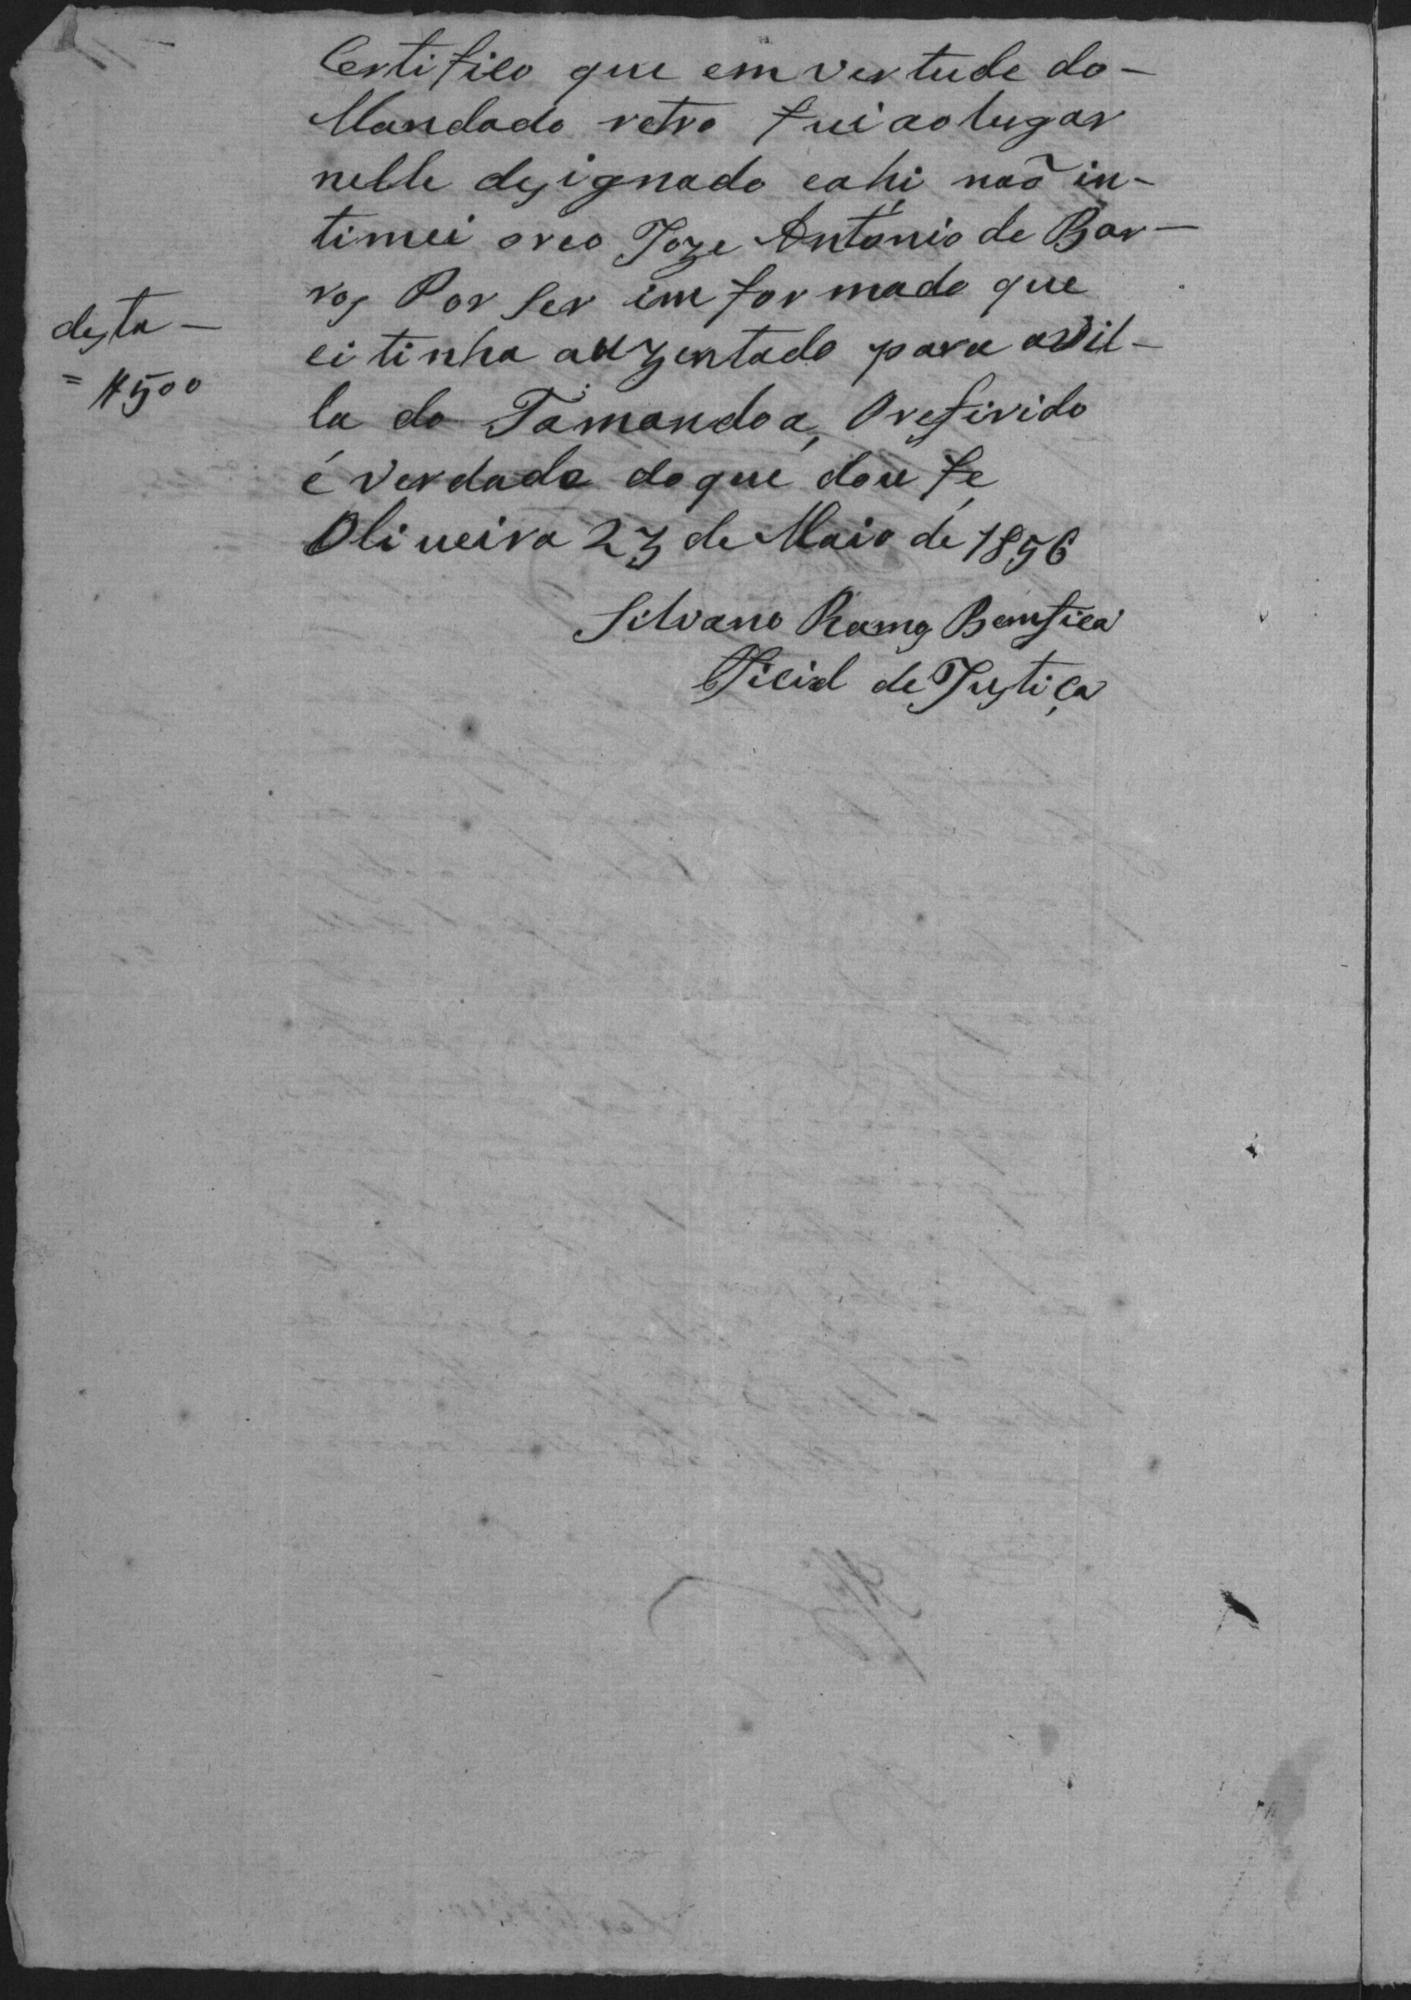 Certifico que em vertude do-
Mandado retro fui ao lugar
nelle designado eahi não in-
timei oreo Joze Antonio de Bar-
ros Por ser imformado que
ei tinha auzentado para avil-
la do Tamandoá, Oreferido
é verdade doque dou fé
Oliveira 23 de Maio de 1896
Silvano Ramos Bemfica
Oficial de Justiça
desta -
= #500